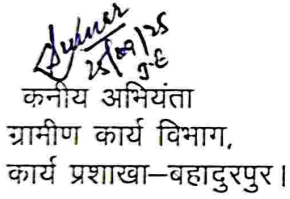 25/09/25
J.E
कनीय अभियंता
ग्रामीण कार्य विभाग,
कार्य प्रशाखा–बहादुरपुर।